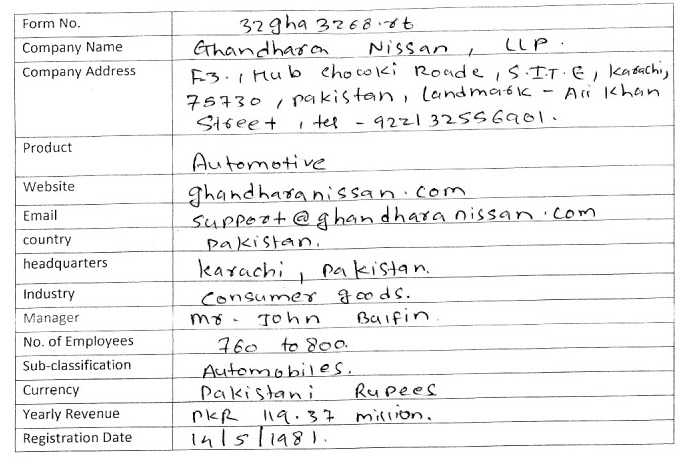 Form No. 32gha3268.rt
Company Name Ghandhara Nissan, LLP.
Company Address F3., Hub chocoki Roade, S.I.T.E, Karachi,
75730, Pakistan, Landmark - Ali Khan
Street, tel - 922132556901.
Product Automotive
Website ghandharanissan.com
Email support@ghandharanissan.com
country Pakistan.
headquarters Karachi, Pakistan.
Industry Consumer goods.
Manager Mr. John
No. of Employees 760 to 800.
Sub-classification Automobiles.
Currency Pakistani Rupees
Yearly Revenue PKR 119.37 million.
Registration Date 14/5/1981.